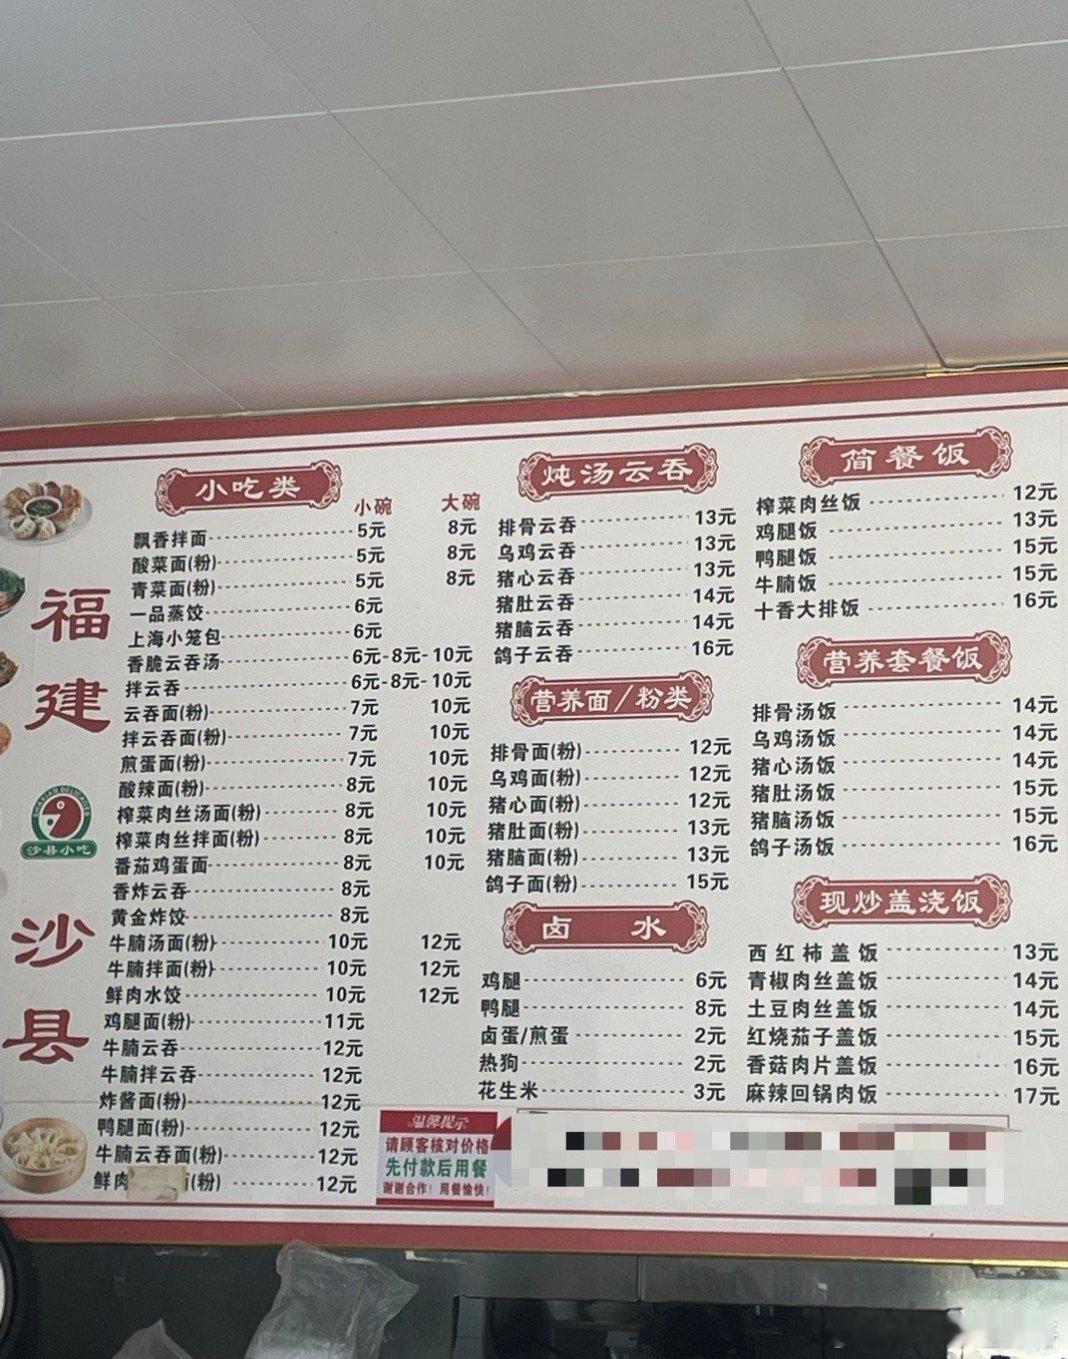 福建沙县
SHAXIAN DELICACIES
沙县小吃
小吃类
小碗 大碗
飘香拌面 5元 8元
酸菜面(粉) 5元 8元
青菜面(粉) 5元 8元
一品蒸饺 6元
上海小笼包 6元
香脆云吞汤 6元-8元-10元
拌云吞 6元-8元-10元
云吞面(粉) 7元 10元
拌云吞面(粉) 7元 10元
煎蛋面(粉) 7元 10元
酸辣面(粉) 8元 10元
榨菜肉丝汤面(粉) 8元 10元
榨菜肉丝拌面(粉) 8元 10元
番茄鸡蛋面 8元 10元
香炸云吞 8元
黄金炸饺 8元
牛腩汤面(粉) 10元 12元
牛腩拌面(粉) 10元 12元
鲜肉水饺 10元 12元
鸡腿面(粉) 11元
牛腩云吞 12元
牛腩拌云吞 12元
炸酱面(粉) 12元
鸭腿面(粉) 12元
牛腩云吞面(粉) 12元
鲜肉 (粉) 12元
炖汤云吞
排骨云吞 13元
乌鸡云吞 13元
猪心云吞 13元
猪肚云吞 14元
猪脑云吞 14元
鸽子云吞 16元
营养面/粉类
排骨面(粉) 12元
乌鸡面(粉) 12元
猪心面(粉) 12元
猪肚面(粉) 13元
猪脑面(粉) 13元
鸽子面(粉) 15元
卤水
鸡腿 6元
鸭腿 8元
卤蛋/煎蛋 2元
热狗 2元
花生米 3元
温馨提示
请顾客核对价格
先付款后用餐
谢谢合作!用餐愉快!
简餐饭
榨菜肉丝饭 12元
鸡腿饭 13元
鸭腿饭 15元
牛腩饭 15元
十香大排饭 16元
营养套餐饭
排骨汤饭 14元
乌鸡汤饭 14元
猪心汤饭 14元
猪肚汤饭 15元
猪脑汤饭 15元
鸽子汤饭 16元
现炒盖浇饭
西红柿盖饭 13元
青椒肉丝盖饭 14元
土豆肉丝盖饭 14元
红烧茄子盖饭 15元
香菇肉片盖饭 16元
麻辣回锅肉饭 17元